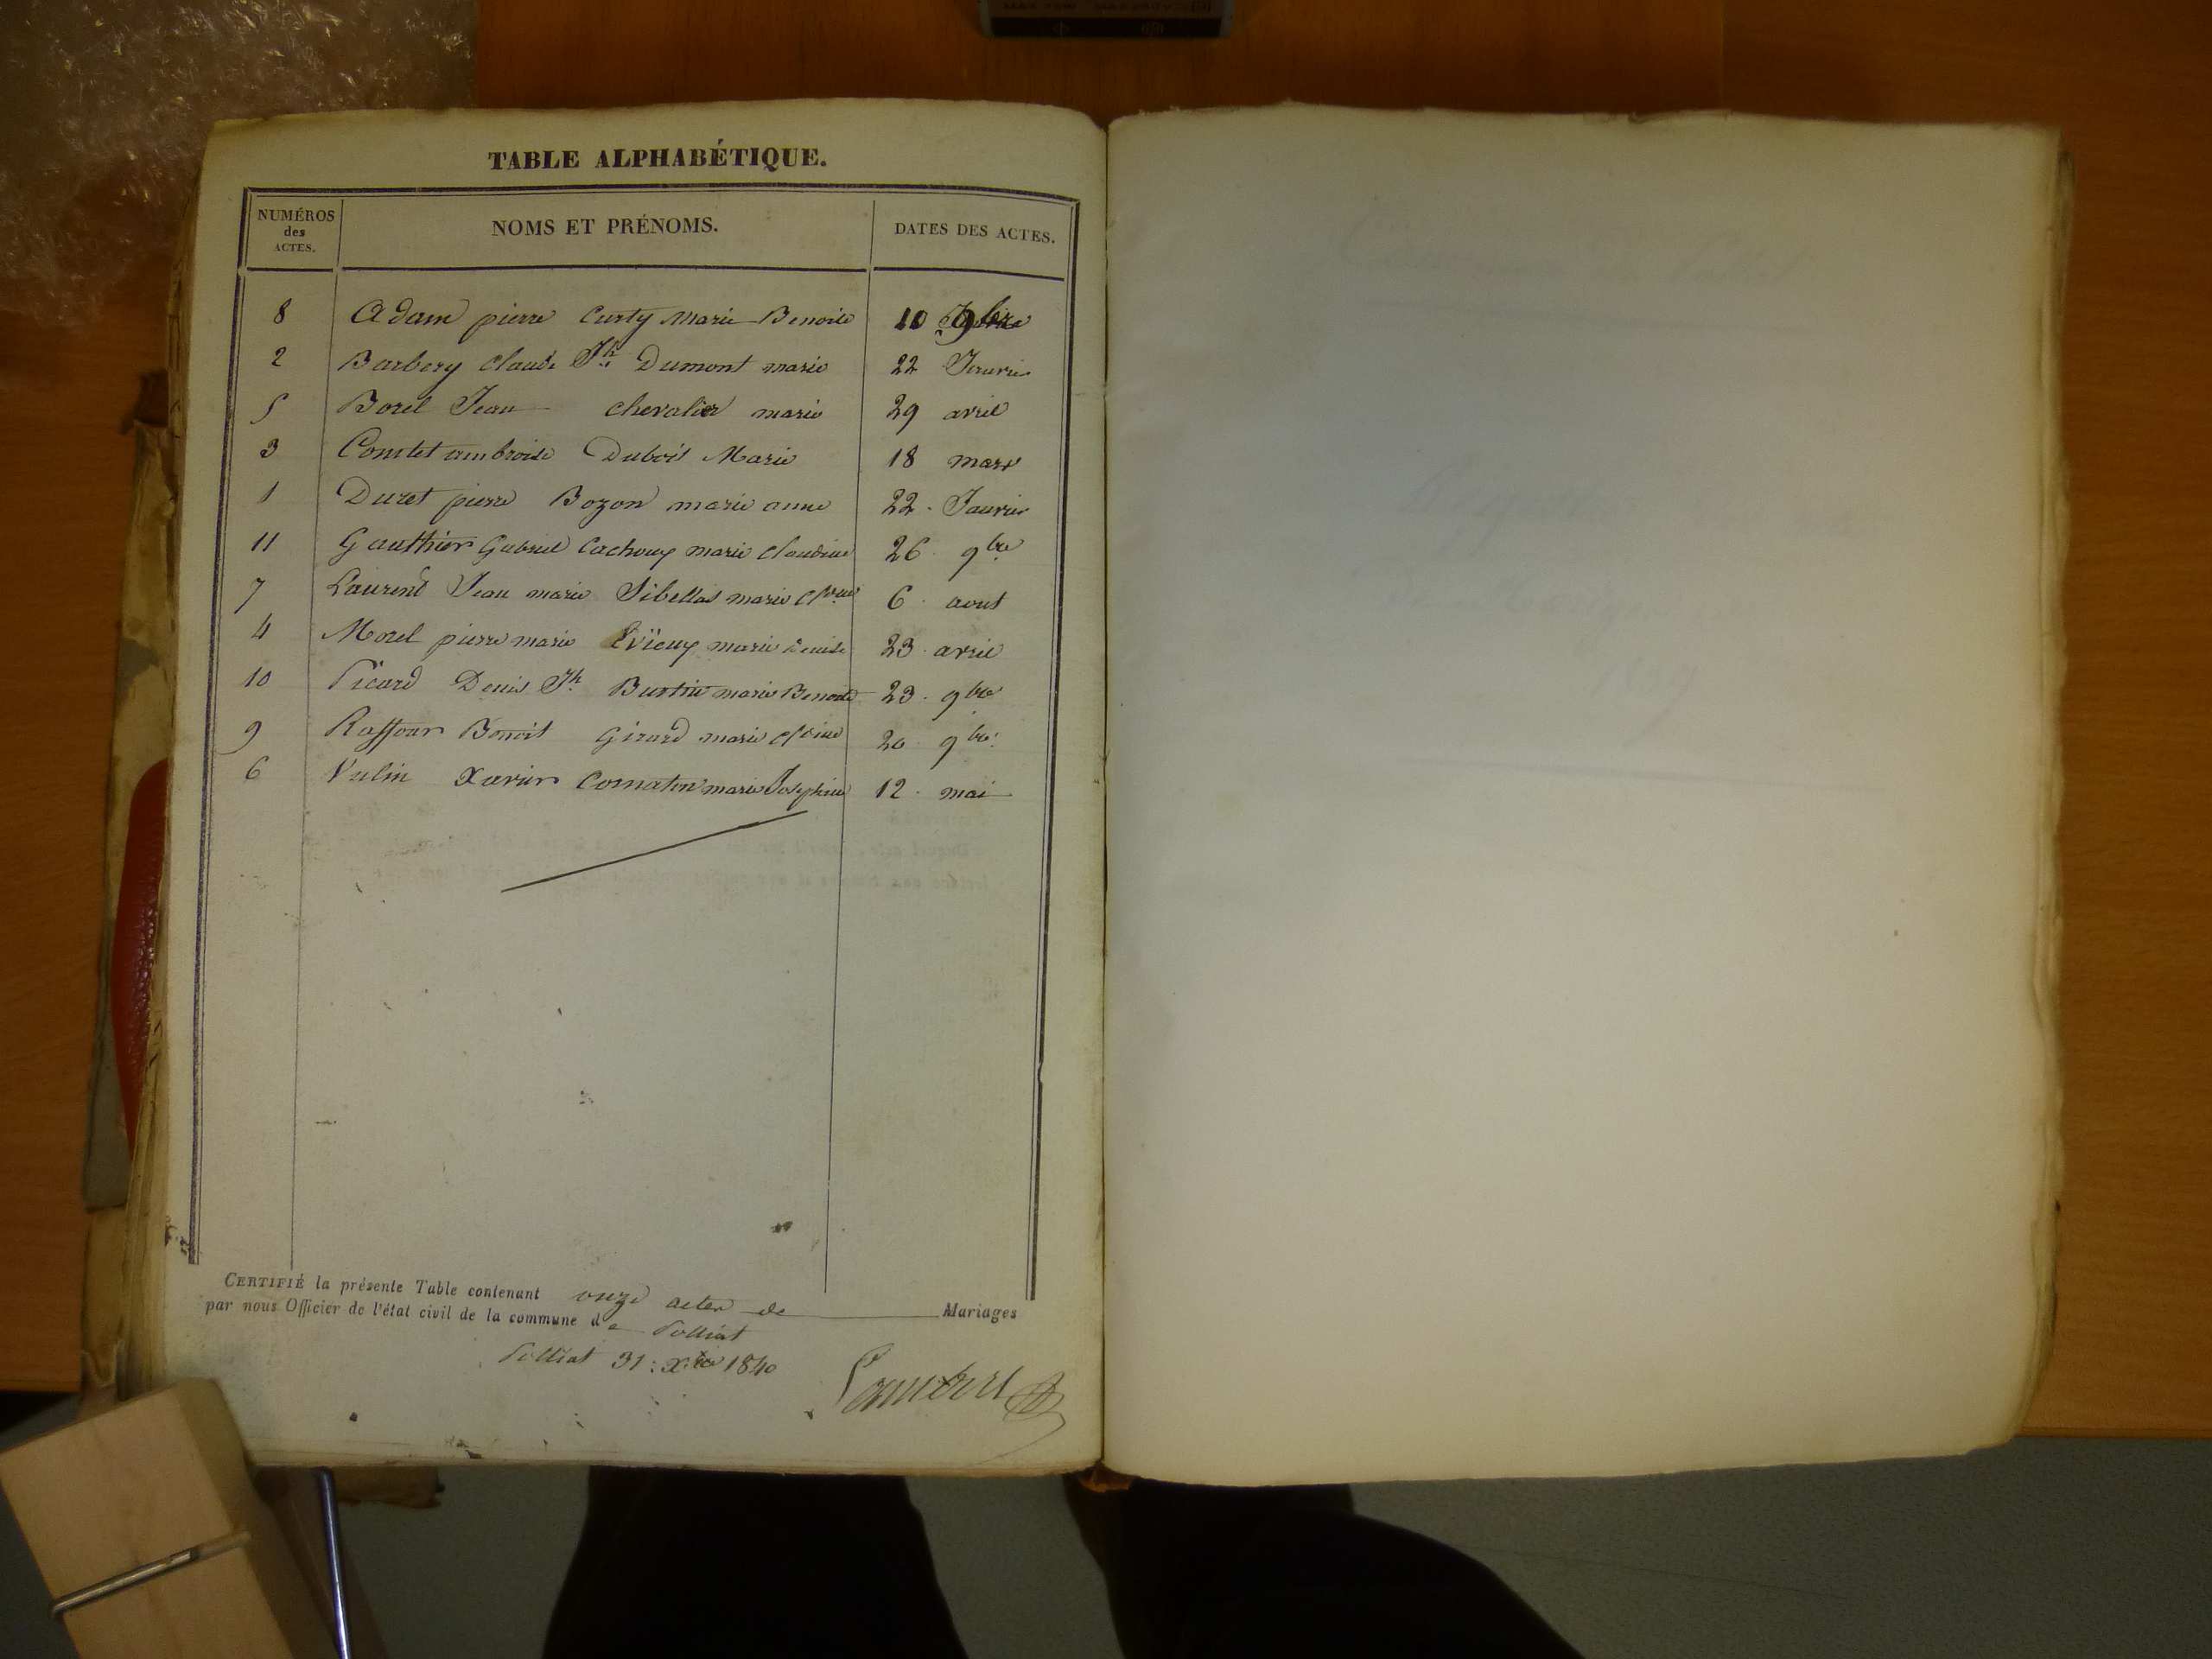 TABLE ALPHABÉTIQUE.
NUMÉROS des ACTES. NOMS ET PRÉNOMS. DATES DES ACTES.
8 Adam pierre Curty Marie Benoite 10 9bre
2 Barbery Claude Jh Dumont marie 22 Janvier
5 Borel Jean chevalier marie 29 avril
3 Comtet ambroise Dubois Marie 18 mars
1 Duret pierre Bozon marie anne 22 Janvier
11 Gauthier Gabriel Cachoux marie claudine 26 9bre
7 Laurent Jean marie Sibellas marie 6 aout
4 Morel pierre marie Evieux marie Denise 23 avril
10 Picard Denis Jh Burtin marie Benoite 23 9bre
9 Raffour Benoit Girard marie 20 9bre
6 Vulin Xavier Cornaton marie Josephine 12 mai
CERTIFIÉ la présente Table contenant onze actes de Mariages
par nous Officier de l'état civil de la commune de Polliat
Polliat 31 Xbre 1840